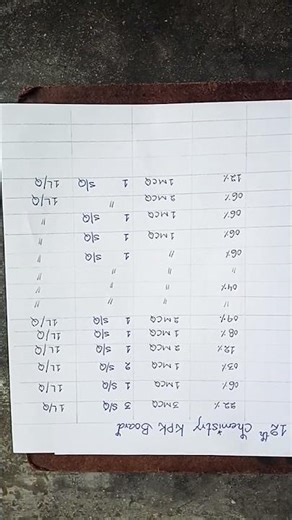 12th Chemistry KPK Board
22% 3MCQ 3 S/Q 1L/Q
06% 1MCQ 1 S/Q 1L/Q
03% 1MCQ 2 S/Q 1L/Q
12% 2MCQ 1 S/Q 1L/Q
08% 1MCQ 1 S/Q 1L/Q
09% 2MCQ 1 S/Q 1L/Q
〃 〃 〃 〃
04% 〃 〃 〃
〃 〃 〃 〃
06% 〃 1 S/Q 〃
06% 1MCQ 1 S/Q 〃
06% 1MCQ 1 S/Q 〃
06% 2MCQ 〃 1L/Q
12% 1MCQ 1 S/Q 1L/Q